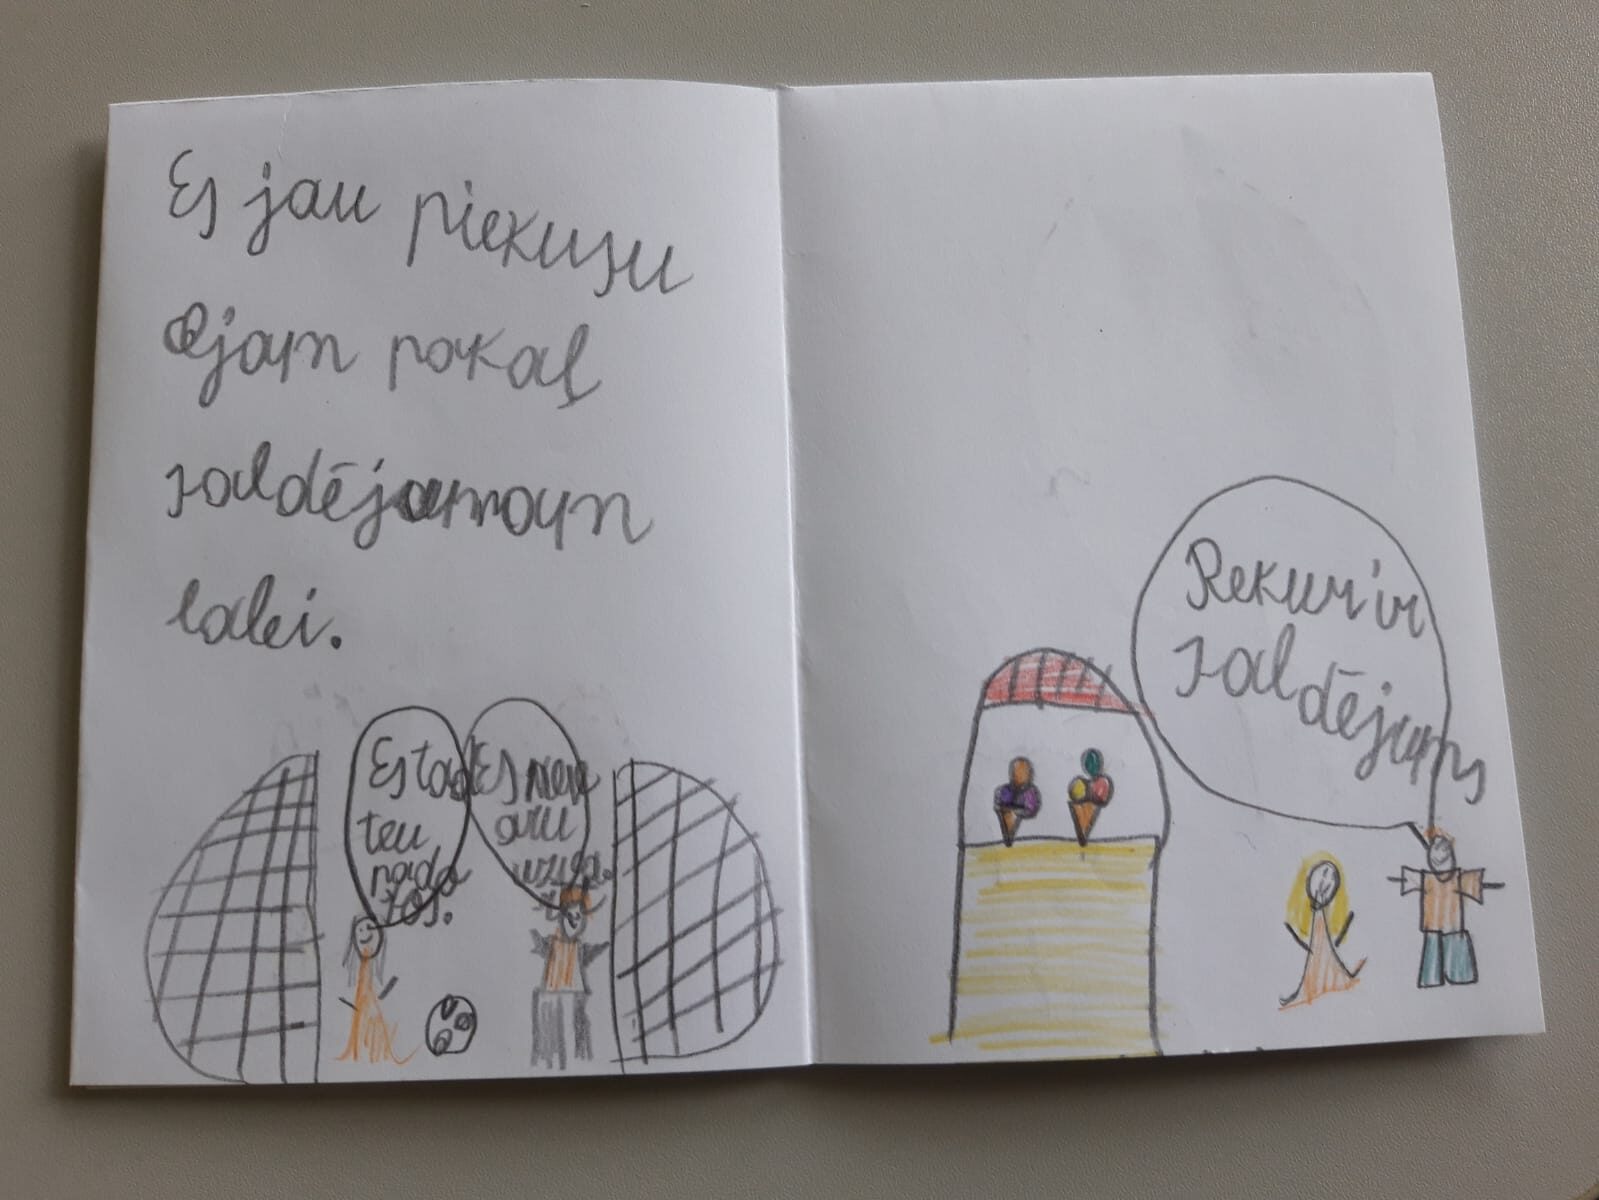 Es jau piekusu
ejam pakaļ
saldējamam
labi.
Es tad
teu
nado
šos.
Es neve
aru
uzva.
Rekur ir
saldējums